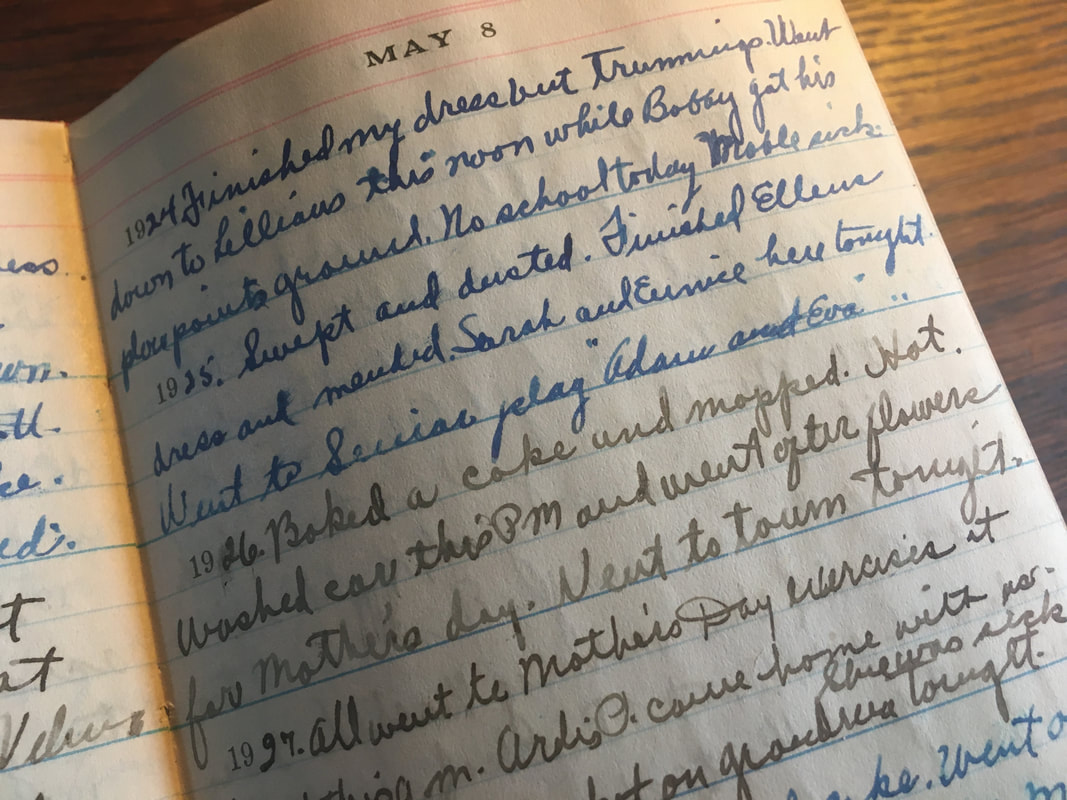 ess.
wn.
tt.
ke.
ed.
t
at
Velma
MAY 8
1924 Finished my dress but Trimmings. Went
down to Lillians this noon while Bobby got his
plowpoints ground. No school today Mable sick.
1925. Swept and dusted. Finished Ellens
dress and mended. Sarah and Eunice here tonight.
Went to Senior play "Adam and Eva"
1926. Baked a cake and mopped. Hot.
Washed car this PM and went after flowers
for Mother's day. Went to town tonight.
1927. All went to Mother's Day exercises it
this a m. Ardis P. came home with us.
She was sick
but on grandma tonight.
ke. Went o
m